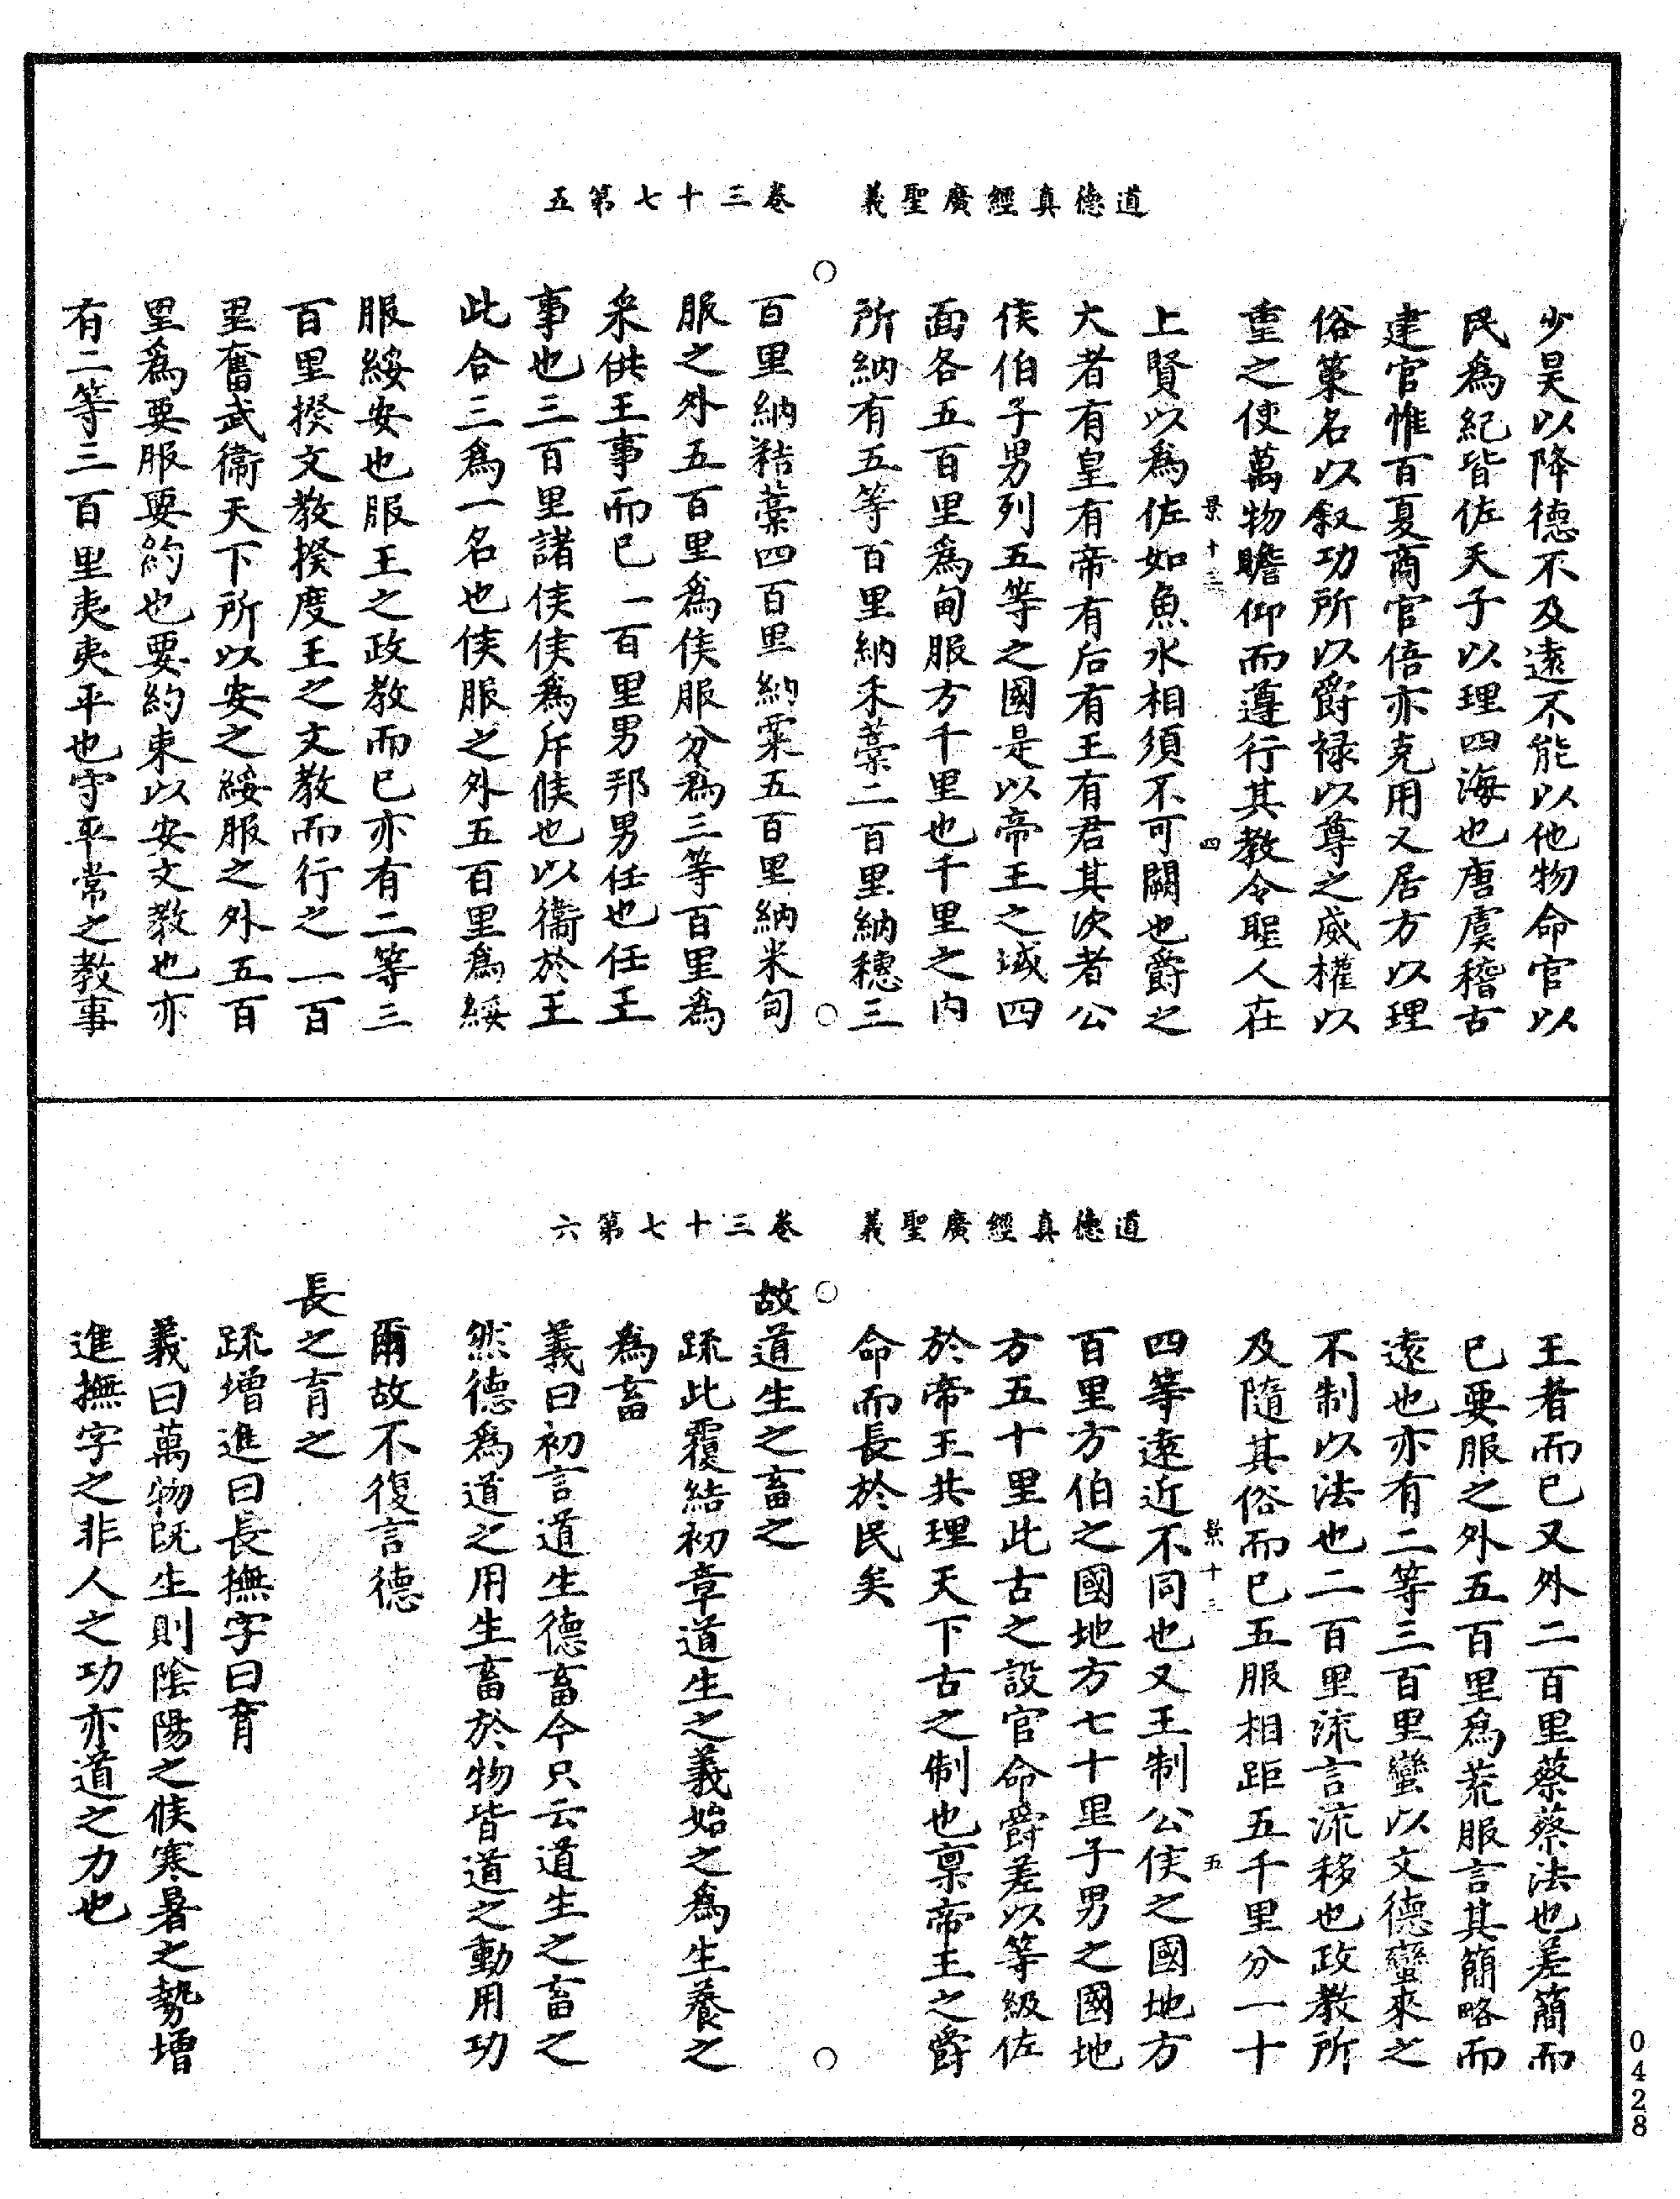 道德真經廣聖義　卷三十七第五
少昊以降德不及遠不能以他物命官以
民為紀皆佐天子以理四海也唐虞稽古
建官惟百夏商官倍亦克用乂居方以理
俗策名以敘功所以爵祿以尊之威權以
重之使萬物瞻仰而遵行其教令聖人在
景十三　四
上賢以為佐如魚水相須不可闕也爵之
大者有皇有帝有后有王有君其次者公
侯伯子男列五等之國是以帝王之域四
面各五百里為甸服方千里也千里之內
所納有五等百里納禾藁二百里納穗三
百里納秸藁四百里納粟五百里納米甸
服之外五百里為侯服分為三等百里為
采供王事而已一百里男邦男任也任王
事也三百里諸侯侯為斥候也以衞於王
此合三為一名也侯服之外五百里為綏
服綏安也服王之政教而已亦有二等三
百里揆文教揆度王之文教而行之一百
里奮武衞天下所以安之綏服之外五百
里為要服要約也要約束以安文教也亦
有二等三百里夷夷平也守平常之教事
道德真經廣聖義　卷三十七第六
王者而已又外二百里蔡蔡法也差簡而
已要服之外五百里為荒服言其簡略而
遠也亦有二等三百里蠻以文德蠻來之
不制以法也二百里流言流移也政教所
及隨其俗而已五服相距五千里分一十
景十三　五
四等遠近不同也又王制公侯之國地方
百里方伯之國地方七十里子男之國地
方五十里此古之設官命爵差以等級佐
於帝王共理天下古之制也稟帝王之爵
命而長於民矣
故道生之畜之
疏此覆結初章道生之義始之為生養之
為畜
義曰初言道生德畜今只云道生之畜之
然德為道之用生畜於物皆道之動用功
爾故不復言德
長之育之
疏增進曰長撫字曰育
義曰萬物既生則陰陽之候寒暑之勢增
進撫字之非人之功亦道之力也
0428